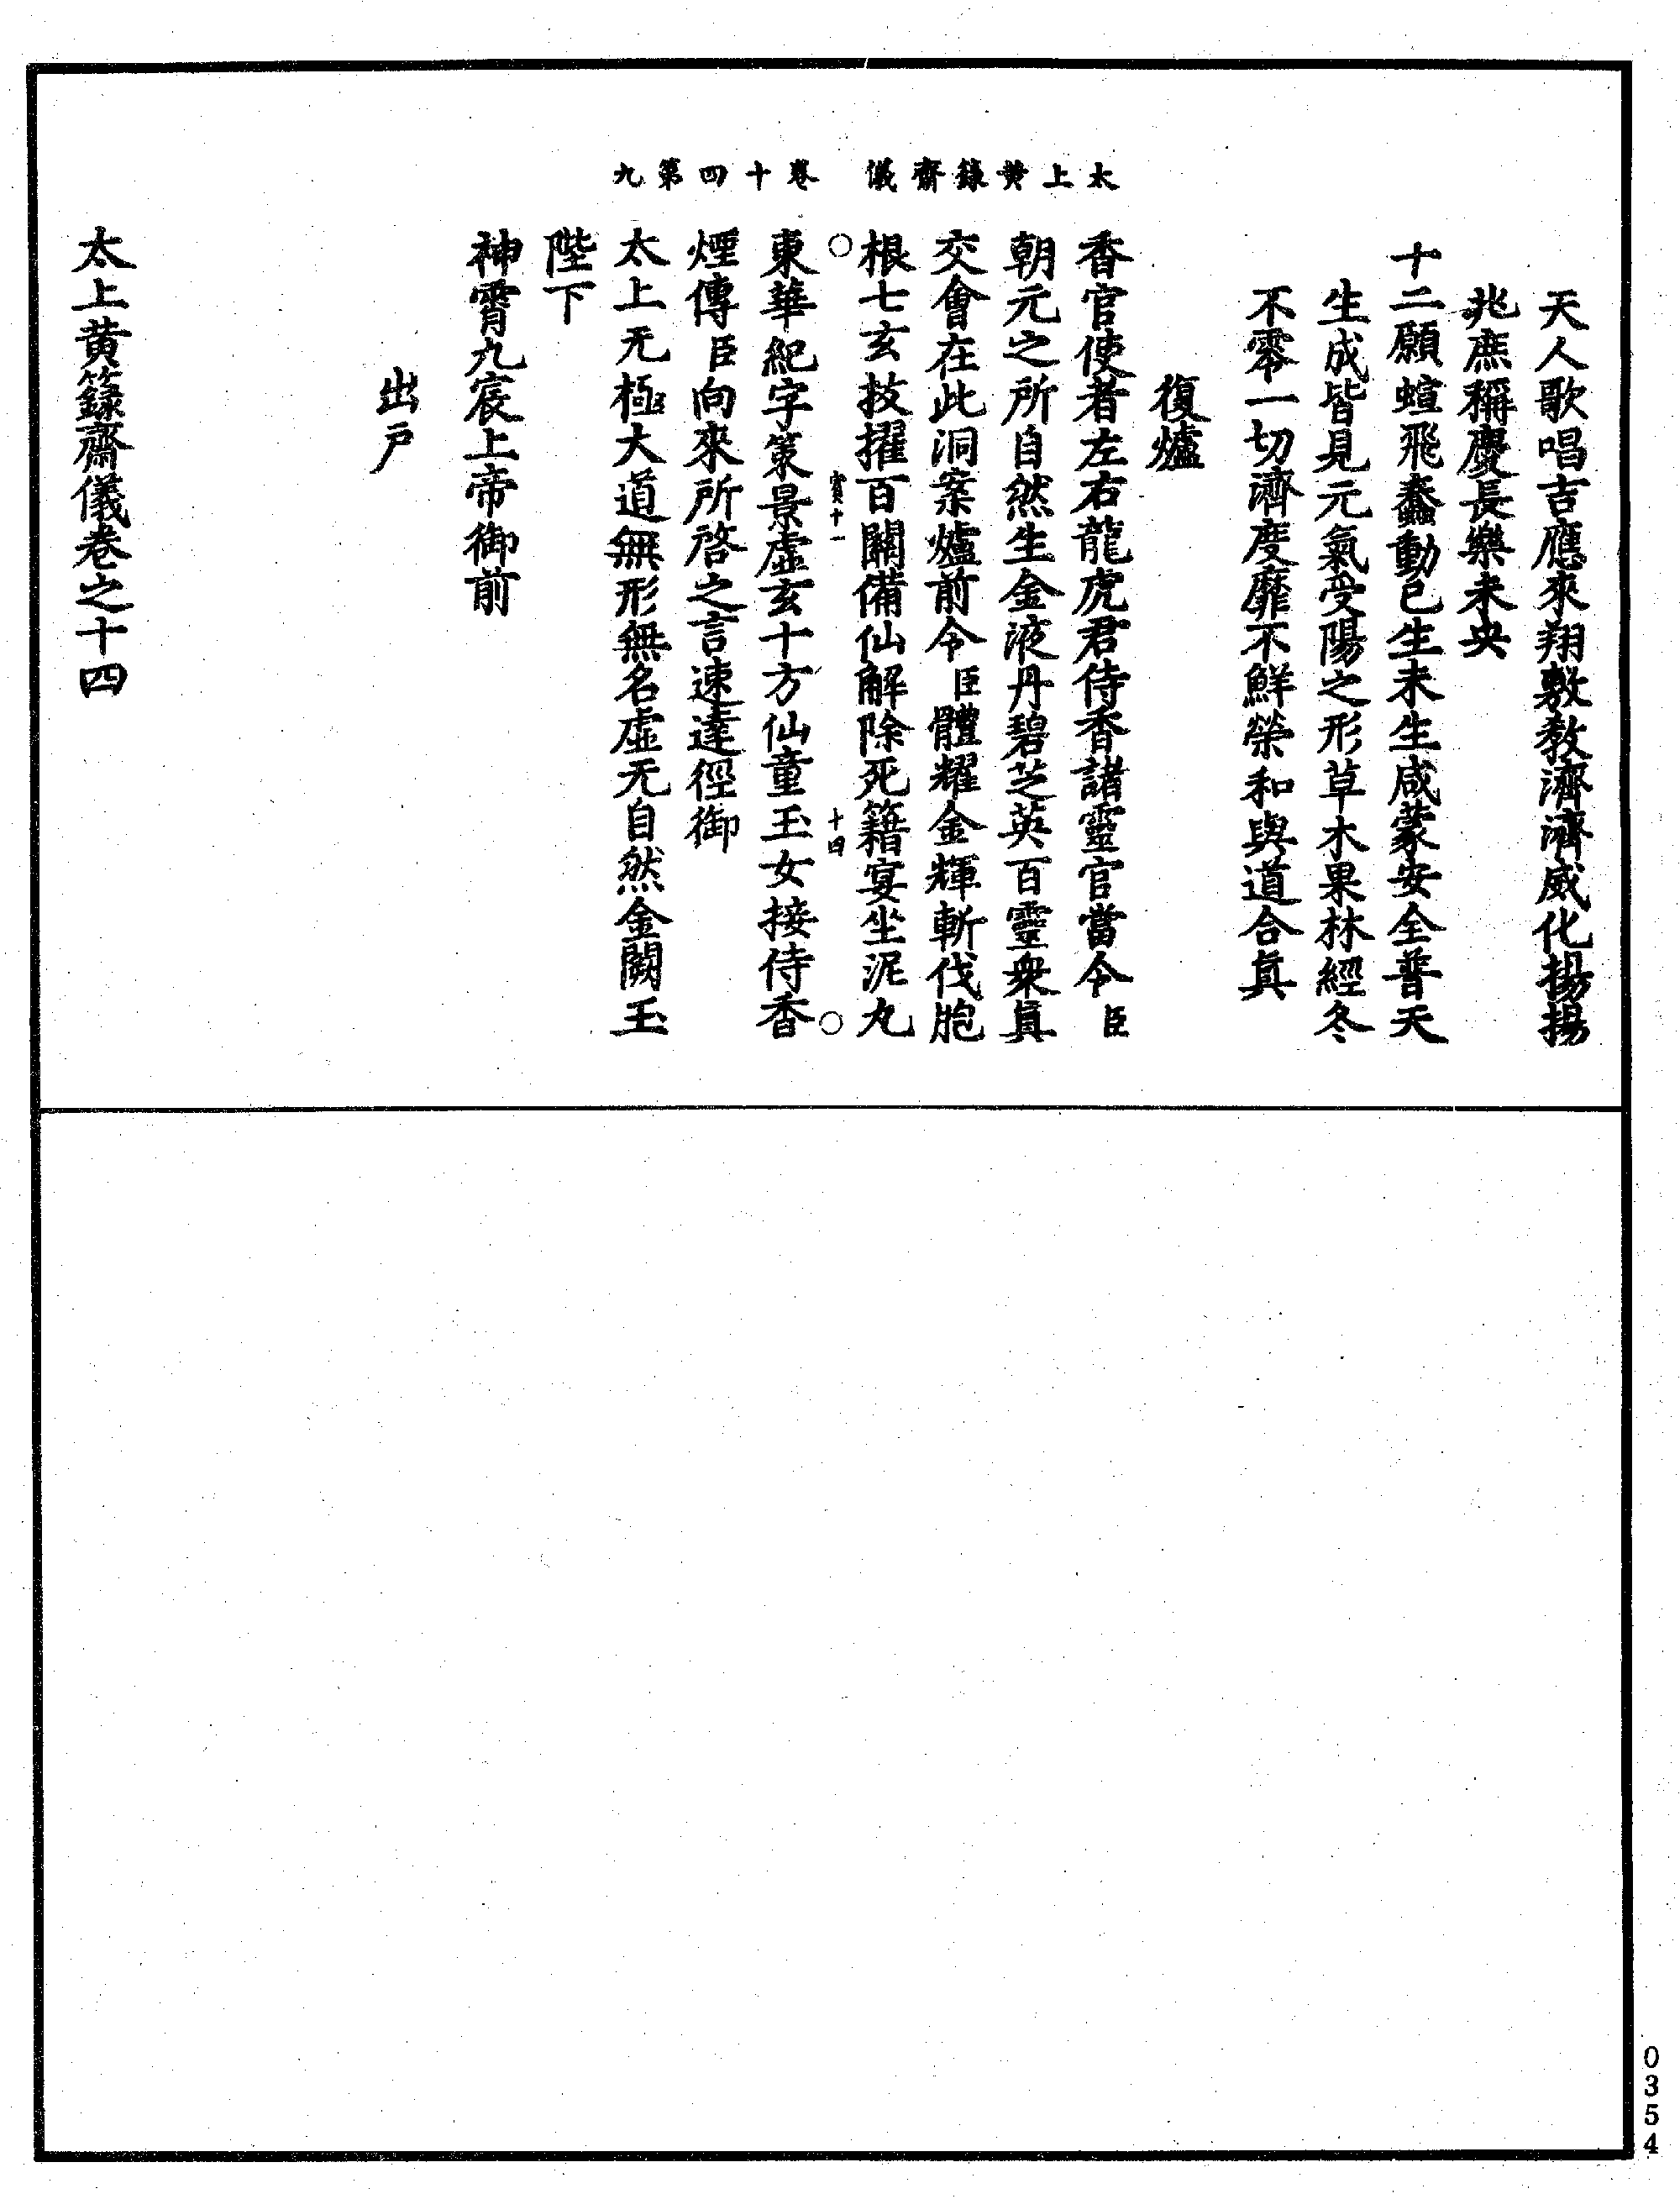 太上黄籙齋儀　卷十四第九
天人歌唱吉應來翔敷教濟濟威化揚揚
兆庶稱慶長樂未央
十二願蝖飛蠢動已生未生咸蒙安全普天
生成皆見元氣受陽之形草木果林經冬
不零一切濟度靡不鮮榮和與道合真
復爐
香官使者左右龍虎君侍香諸靈官當令臣
朝元之所自然生金液丹碧芝英百靈衆真
交會在此洞案爐前令臣體耀金輝斬伐胞
根七玄技擢百關備仙解除死籍宴坐泥丸
賓十一　十四
東華紀字策景虛玄十方仙童玉女接侍香
煙傳臣向來所啓之言速達徑御
太上无極大道無形無名虛无自然金闕玉
陛下
神霄九宸上帝御前
出戶
太上黄籙齋儀卷之十四
0354